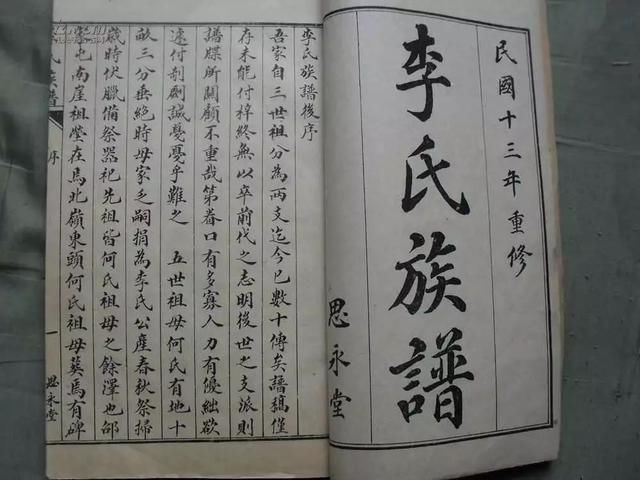 民國十三年重修
李氏族譜
思永堂
李氏族譜後序
吾家自三世祖分為兩支迄今已數十傳矣譜稿僅
存未能付梓終無以卒前代之志明後世之支派則
譜牒所關顧不重哉第眷口有多寡人力有優絀欲
速付剞劂誠戞戞乎難之 五世祖母何氏有地十
畝三分垂絕時母家乏嗣捐為李氏公產春秋祭掃
歲時伏臘備祭器祀先祖皆何氏祖母之餘澤也邰
家屯南崖祖塋在焉北嶺東頭何氏祖母葬焉有碑
氏族譜
序
一
思永堂